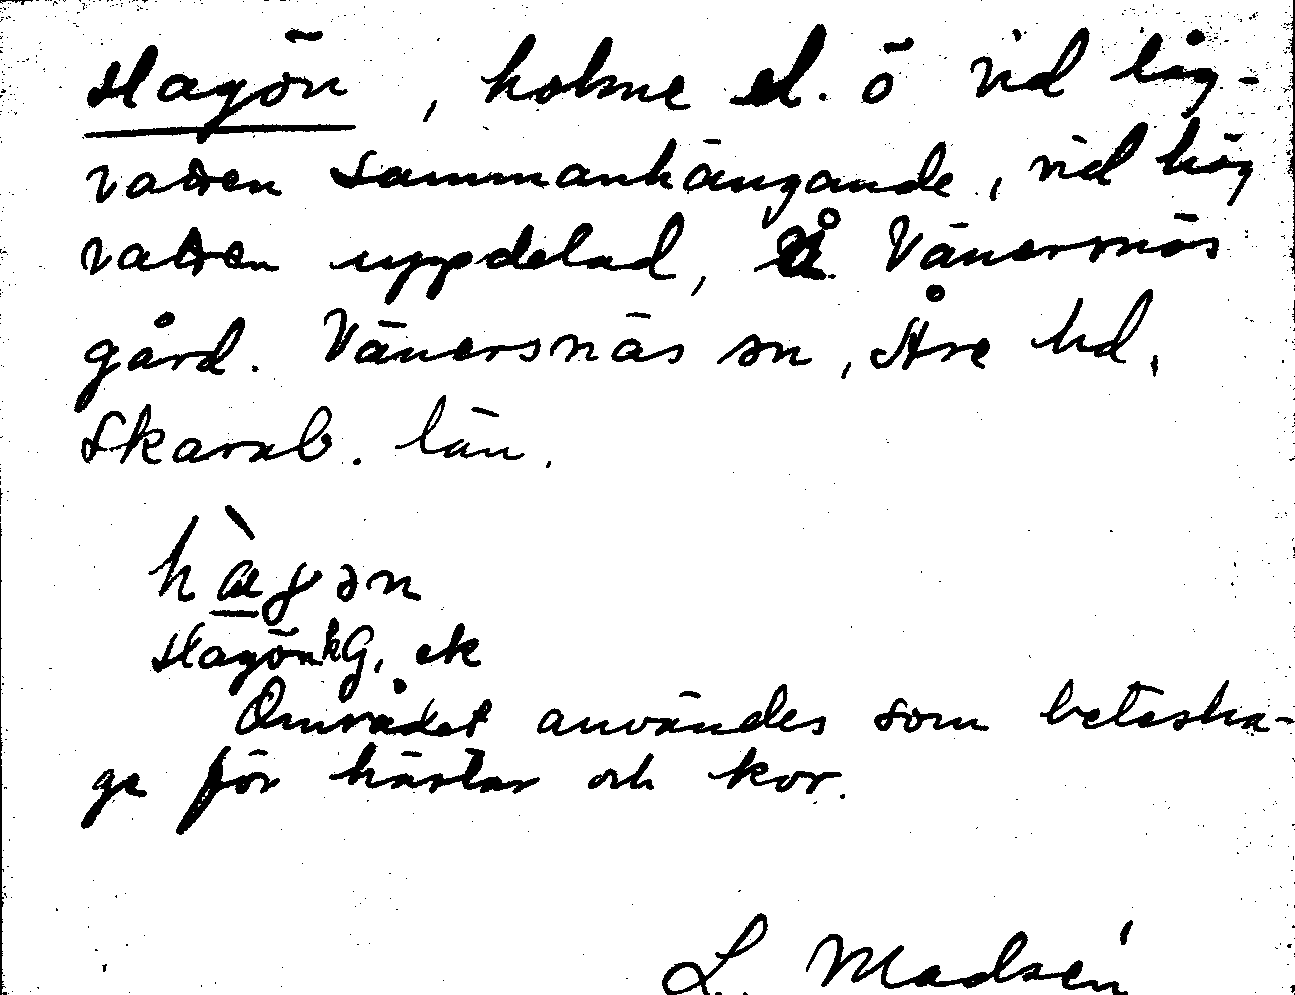 Hagön, holme el. ö vid låg-
vatten sammanhängande, vid hög
vatten uppdelad, å Vänersnäs
gård. Vänersnäs sn, Åse hd,
Skarab. län.
hàgən
Hagön kG, ek
Området användes som betesha-
ge för hästar och kor.
L. Madsén